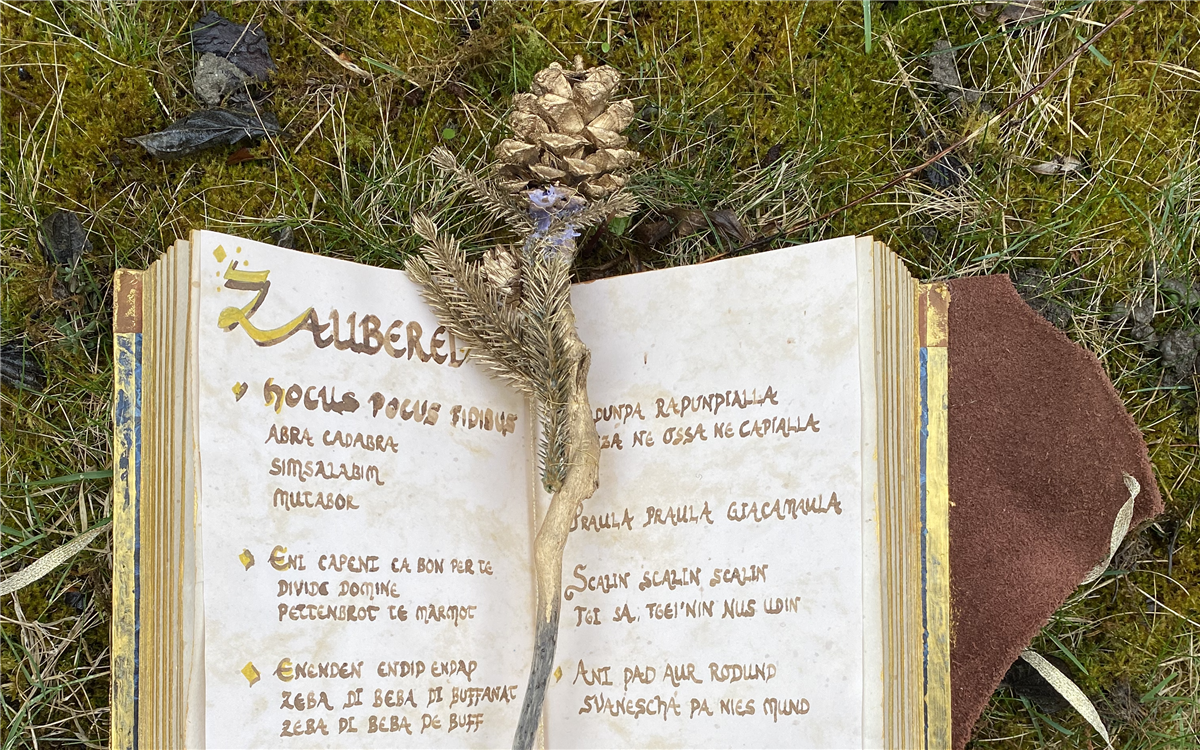 ZAUBEREI
HOCUS POCUS FIDIBUS
ABRA CADABRA
SIMSALABIM
MUTABOR
ENI CAPENI CA BON PER TE
DIVIDE DOMINE
PETTENBROT TE MARMOT
ENENDEN ENDIP ENDAP
ZEBA DI BEBA DI BUFFANAT
ZEBA DI BEBA DE BUFF
RAPUNDIALLA
NE OSSA NE CAPIALLA
PRAULA PRAULA GIACAMAULA
SCALIN SCALIN SCALIN
TGI SA, TGEI'NIN NUS UDIN
ANI PAD AUR RODUND
SVANESCHA DA NIES MUND